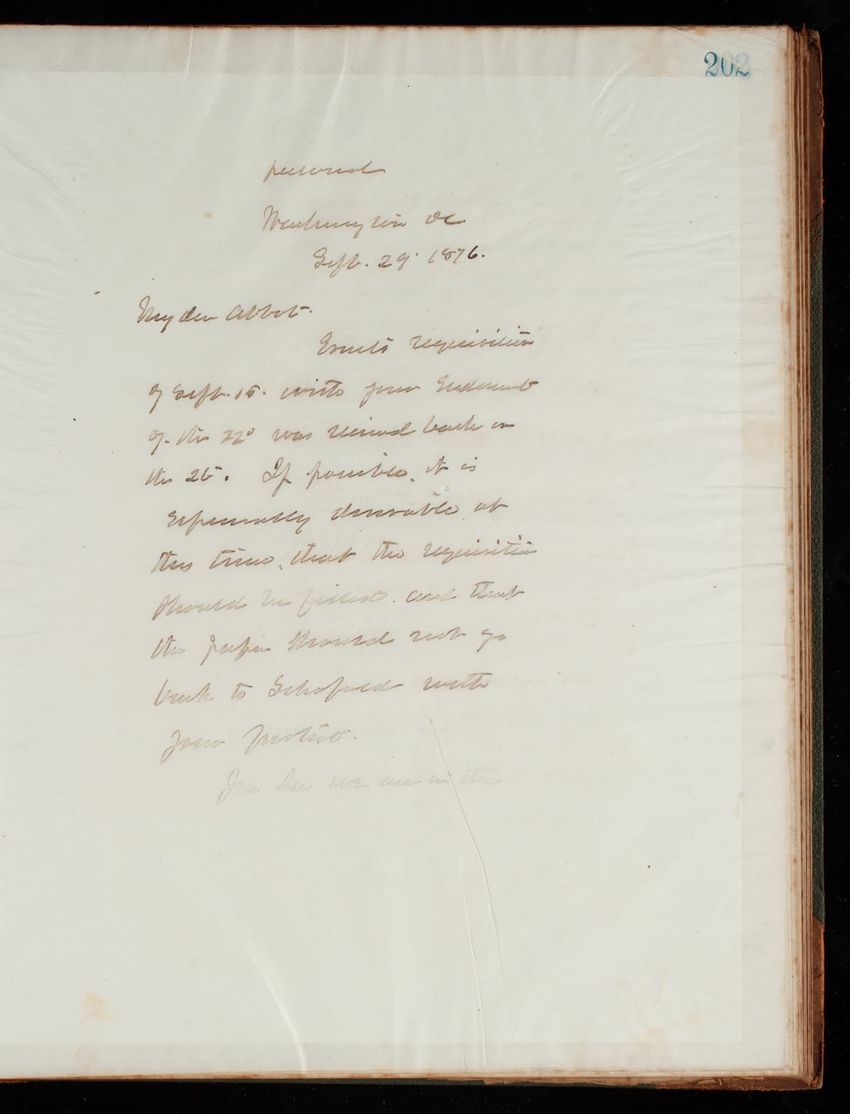 202
personal
Washington DC
Sept. 29. 1876.
My dear Abbot.
Ernst's requisition
of Sept. 15. with your Endorsement
of the 22d was received back on
the 25. If possible, it is
especially desirable at
this time, that the requisition
should be filled. and that
the paper should not go
back to Schofield with
your protest.
You see we are in the